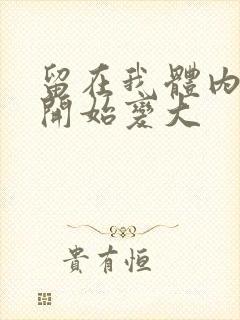 留在我體內
開始變大
貴有恒